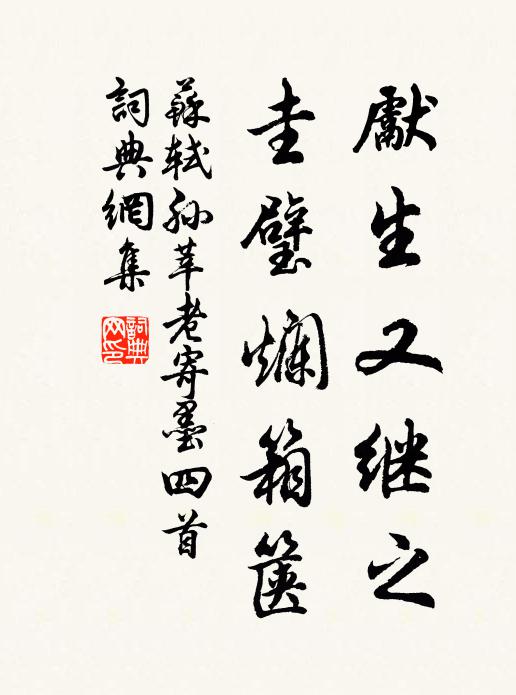 獻生又继之
圭璧爛箱篋
蘇軾孙莘老寄墨四首
詞典網集
詞典网印